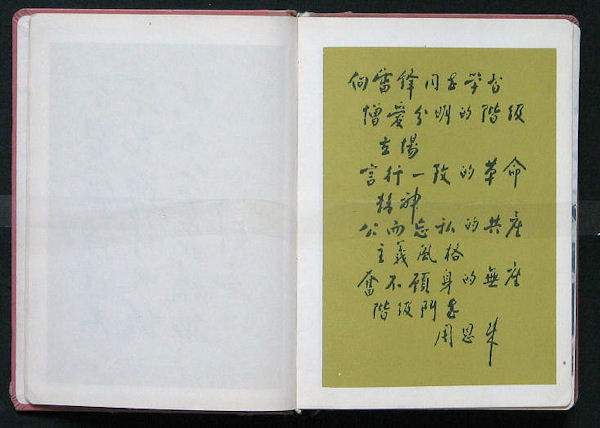 向雷鋒同志学習
憎愛分明的階級
立場
言行一致的革命
精神
公而忘私的共產
主義風格
奮不顧身的無產
階級鬥志
周恩来